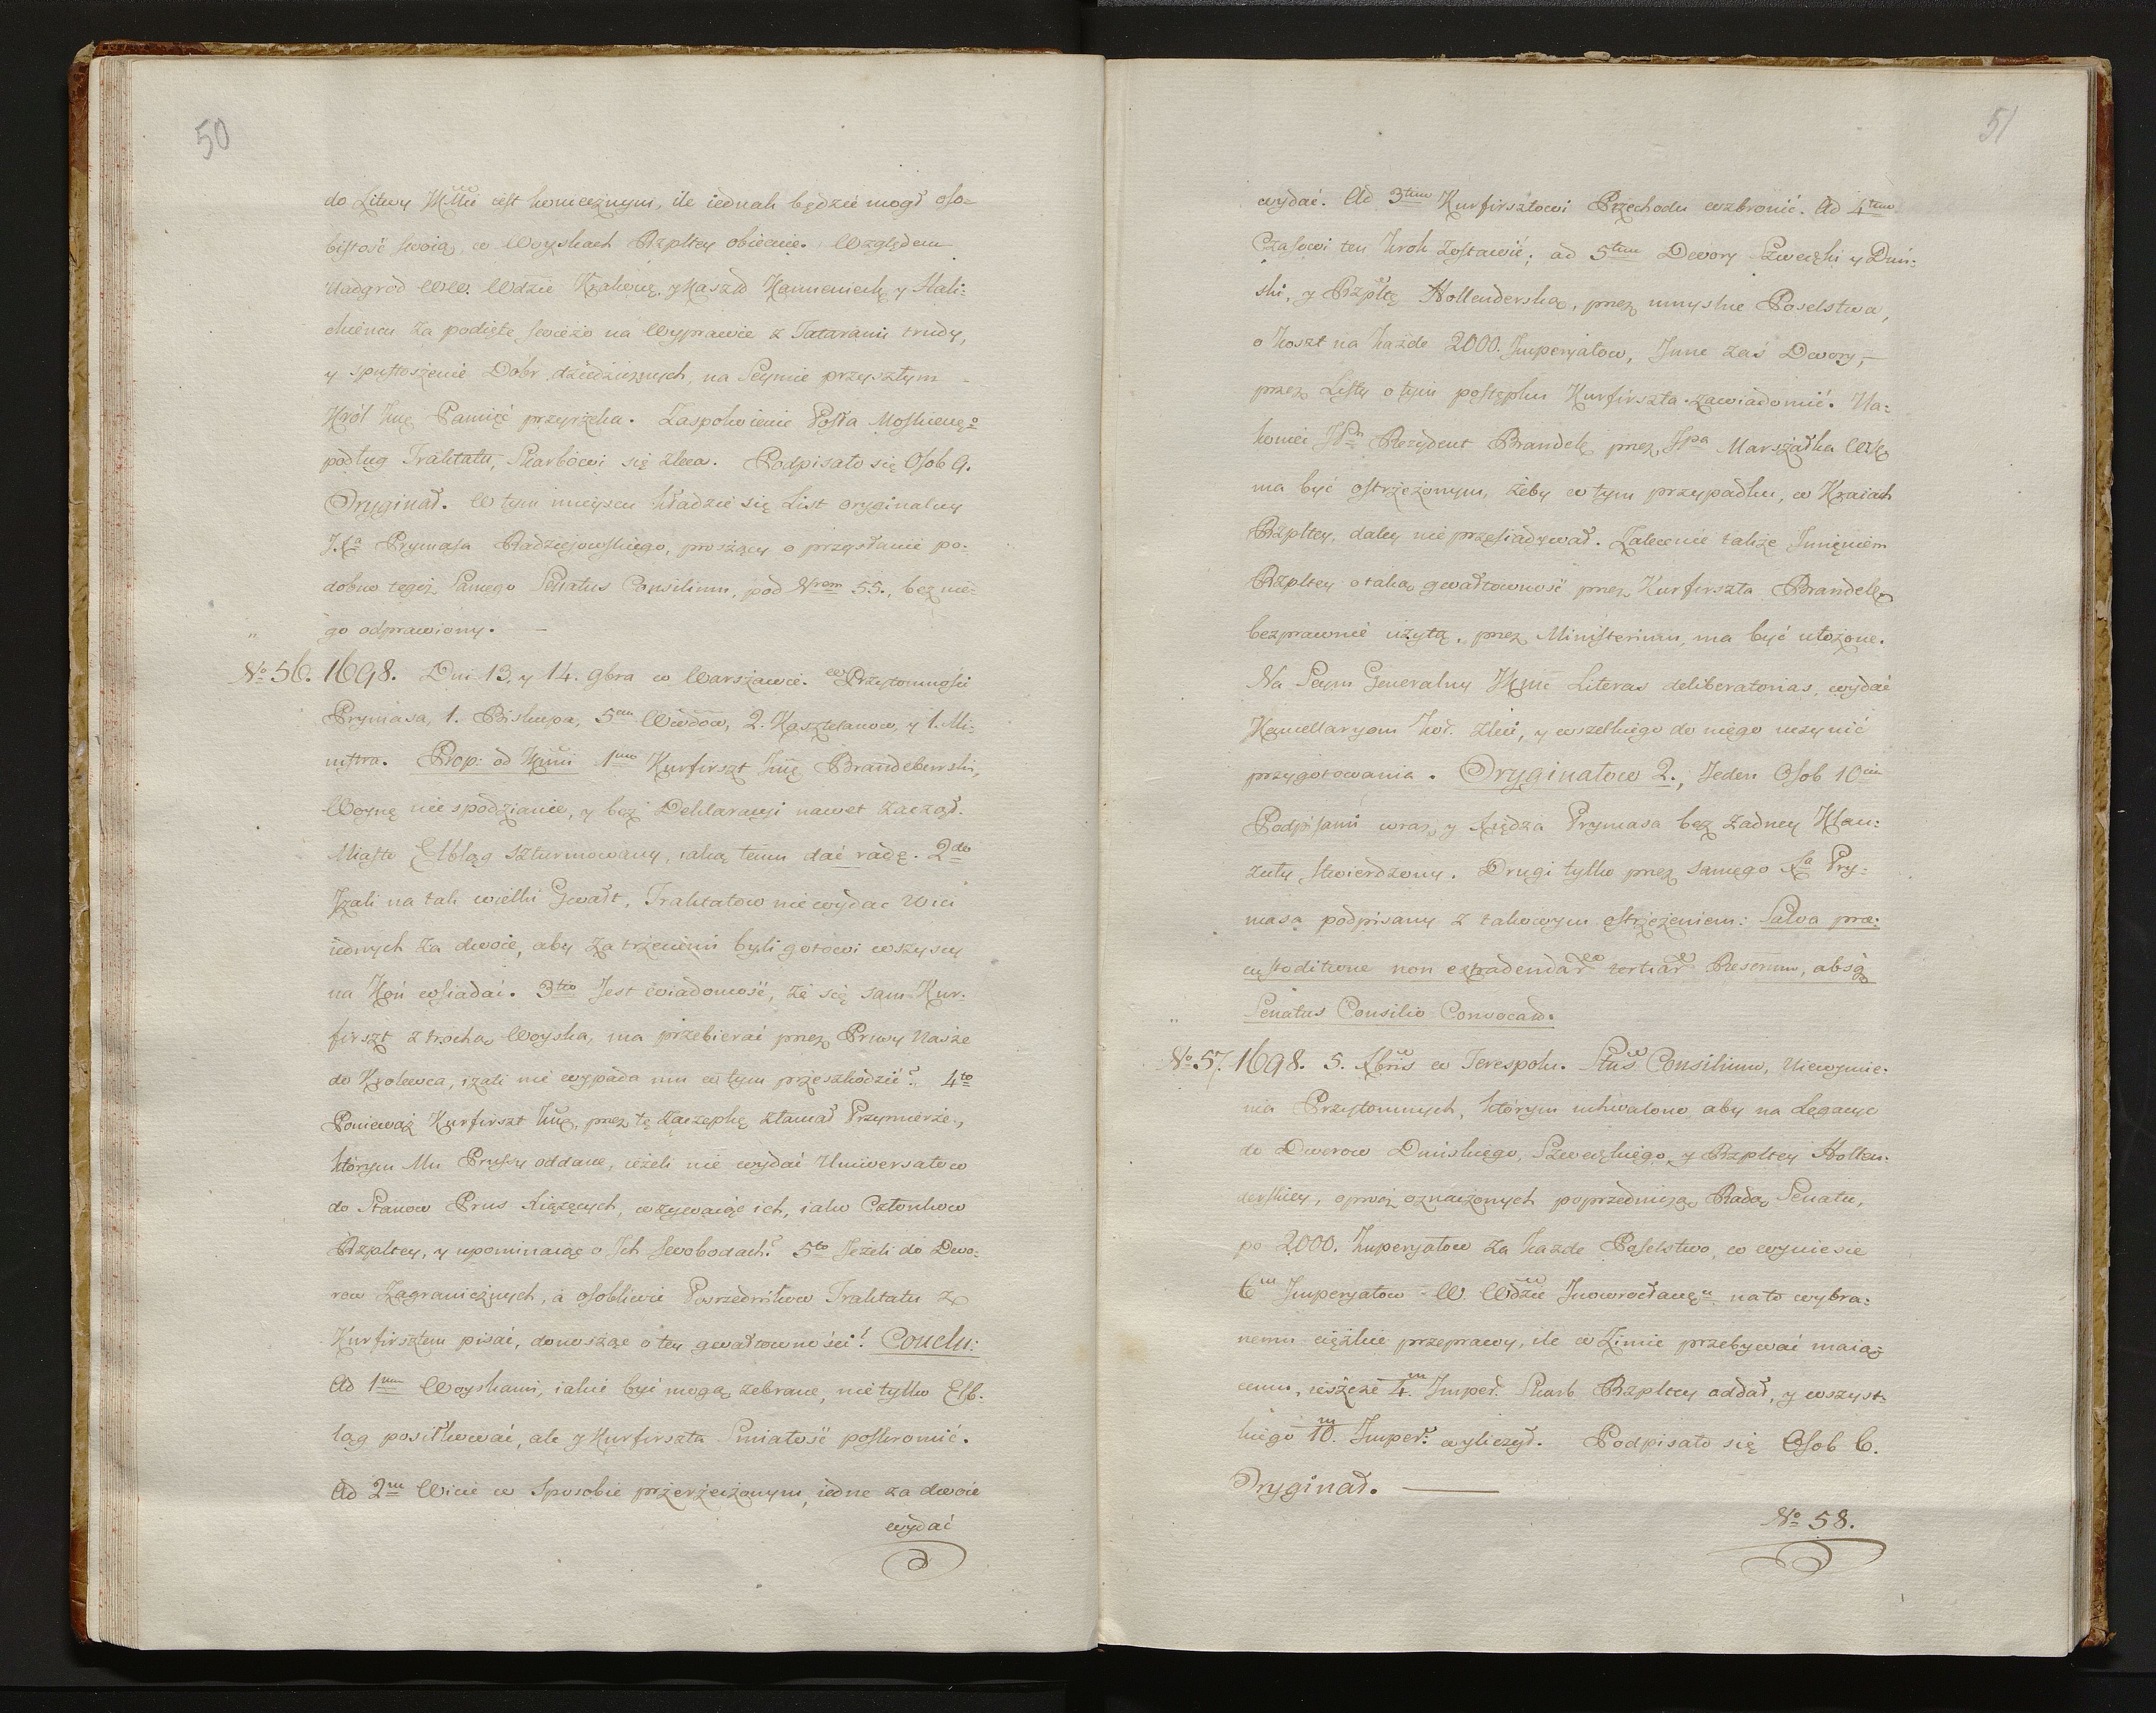 50
do Litwy JKMci iest koniecznym, ile iednak będzie mogł oso-
bistość swoią, w Woyskach Rzpltey obiecuie. Względem
nadgrod WW. Wdzie Krakowę, y Kasztd Kamienieck. y Hali-
ckiemu za podięte swieżo na Wyprawie z Tatarami trudy,
y spustoszenie Dobr dziedzicznych, na Seymie przyszłym –
Król Jmę Pamięć przyrzeka. Zaspokoienie Posła Moskiewgo
podług Traktatu, Skarbowi się zleca. Podpisało się Osob 9.
Oryginał. W tym mieyscu kładzie się List oryginalny
J. Xa Prymasa Radziejowskiego, proszący o przysłanie po-
dobno tegoż samego Senatus Consilium, pod Nrem 55., bez nie-
go odprawiony. –
No 56. 1698. Dni 13, y 14. 9bra w Warszawie. w Przytomności
Prymasa, 1. Biskupa, 5cm Wwdow, 2. Kasztelanow, y 1. Mi-
nistra. Prop: od JKMci 1mo Kurfirszt Jmę Brandeburski,
Woynę niespodzianie, y bez Deklaracyi nawet zaczął.
Miasto Elbląg szturmowany, iaką temu dać radę. 2do
Jzali na tak wielki Gwałt, Traktatow nie wydac Wici
iednych za dwoie, aby za trzeciemi byli gotowi wszyscy
na Koń wsiadać. 3tio Jest wiadomość, że się sam Kur-
firszt z trochą Woyska, ma przebierać przez Prusy Nasze
do Krolewca, izali nie wypada mu w tym przeszkodzić? 4to
Ponieważ Kurfirszt Jmę, przez tę zaczepkę złamał Przymierze,
którym Mu Prusy oddane, ieżeli nie wydać Uniwersałow
do Stanow Prus Xiążęcych, wzywaiąc ich, iako Członkow
Rzpltey, y upominaiąc o Ich swobodach? 5to Jeżeli do Dwo-
row Zagranicznych, a osobliwie Pośrzednikow Traktatu z
Kurfirsztem pisać, donosząc o tey gwałtowności? Conclu:
Ad 1mum Woyskami, iakie być mogą zebrane, nie tylko Elb-
ląg posiłkować, ale y Kurfirszta śmiałość poskromić.
Ad 2m Wicie w sposobie przerzeczonym, iedne za dwoie
wydać
51
wydać. Ad 3tium Kurfirsztowi Przechodu wzbronić. Ad 4tum
Czasowi ten krok zostawić; ad 5tum Dwory Szwedzki y Duń-
ski, y Rzpltę Hollenderską, przez umyslne Poselstwa,
o koszt na każde 2000. Imperyałow, Inne zaś Dwory, –
przez Listy o tym postępku Kurfirszta zawiadomić. Na-
koniec JPn Rezydent Brandeb. przez JPa Marszałka WK
ma być ostrzeżonym, żeby w tym przypadku, w Kraiach
Rzpltey, daley nie przesiadywał. Zalecenie także Imieniem
Rzpltey o taką gwałtowność przez Kurfirszta Brandeb
bezprawnie użytą, przez Ministerium, ma być ułożone.
Na Seym Generalny JKMć Literas deliberatorias, wydać
Kancellaryom Kor. zleci, y wszelkiego do niego uczynić
przygotowania. Oryginałow 2., Jeden Osob 10ciu
Podpisami wraz y Xiędza Prymasa bez żadney Klau-
zuły stwierdzony. Drugi tylko przez samego Xa Pry-
masa podpisany z takowym ostrzeżeniem: Salva præ-
custoditione non extradendar tertiar Restium, absq
Senatus Consilio Convocand.
No 57. 1698. 5. Xbris w Terespolu. Stus Consilium, Niewymie-
nia Przytomnych, którym uchwalono, aby na Legacye
do Dworow Duńskiego, Szwedzkiego, y Rzpltey Hollen-
derskiey, oprocz oznaczonych poprzedniczą Radą Senatu,
po 2000. Imperyałow za każde Poselstwo, co wyniesie
6m Imperyałow W. Wdzie Inowrocławgu na to wybra-
nemu ciężkie przeprawy, ile w Zimie przebywać maią-
cemu, ieszcze 4m. Imper. Skarb Rzpltey oddał, y wszyst-
kiego 10m. Imper. wyliczył. Podpisało się Osob 6.
Oryginał. –
No 58.